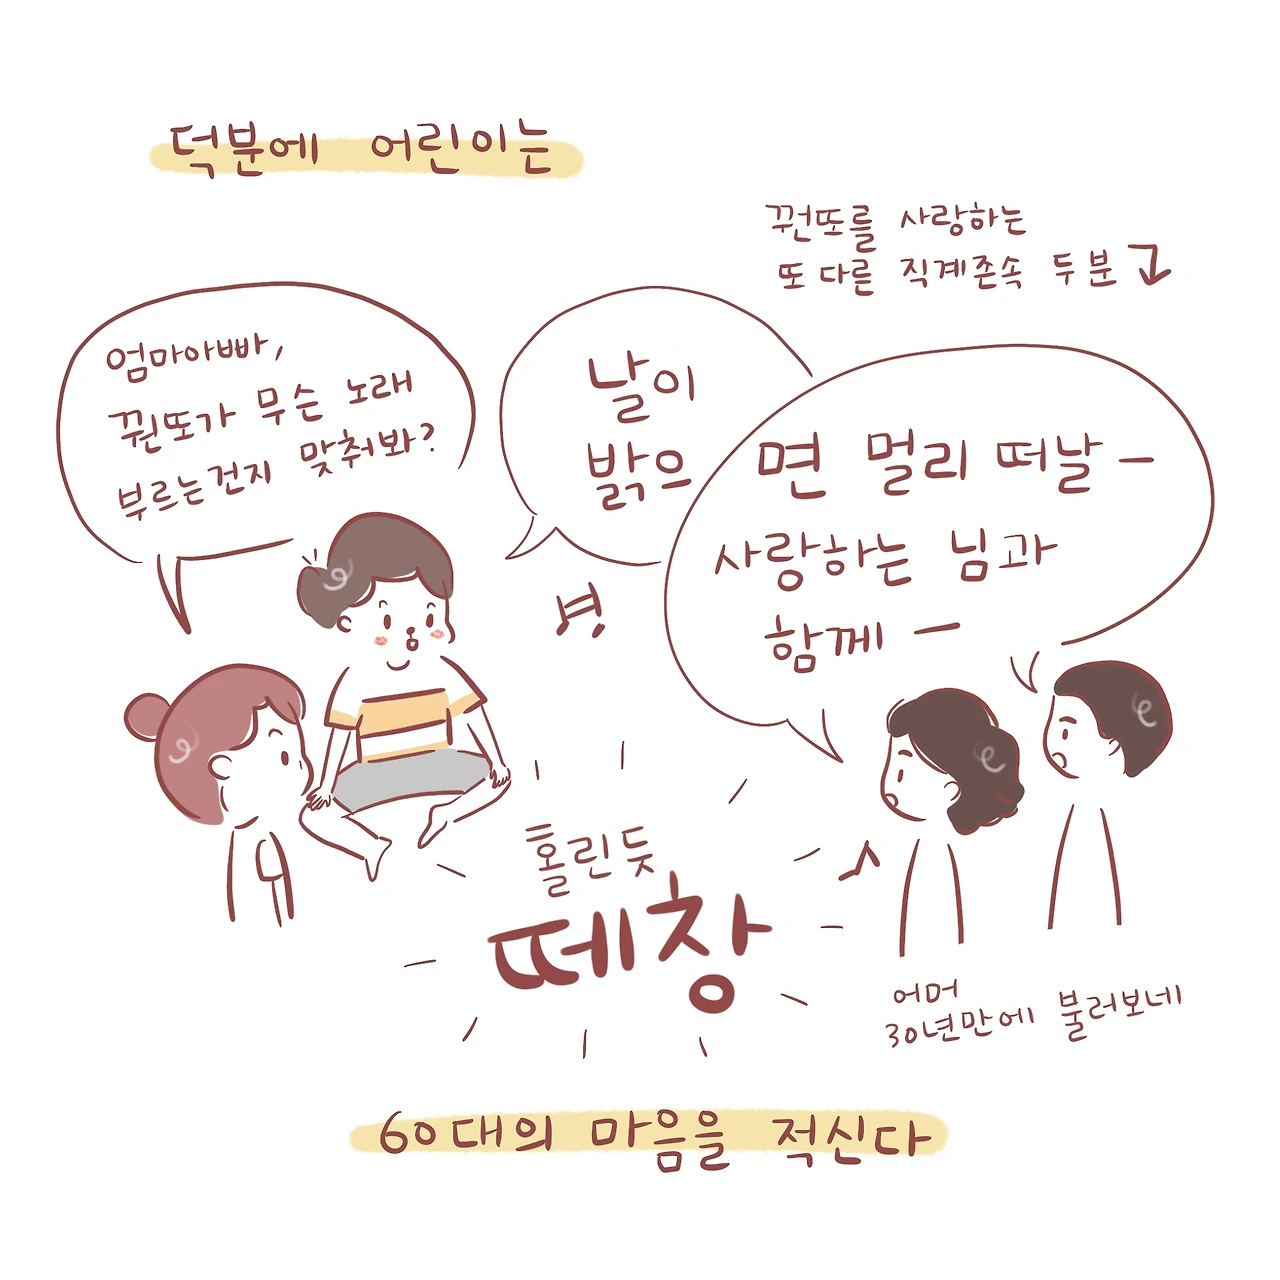 덕분에 어린이는
꿔또를 사랑하는
또 다른 직계존속 두분
엄마아빠,
꿔또가 무슨 노래
부르는건지 맞춰봐?
날이
밝으
면 멀리 떠날 -
사랑하는 님과
함께 -
홀린듯
떼창
어머
30년만에 불러보네
60대의 마음을 적신다